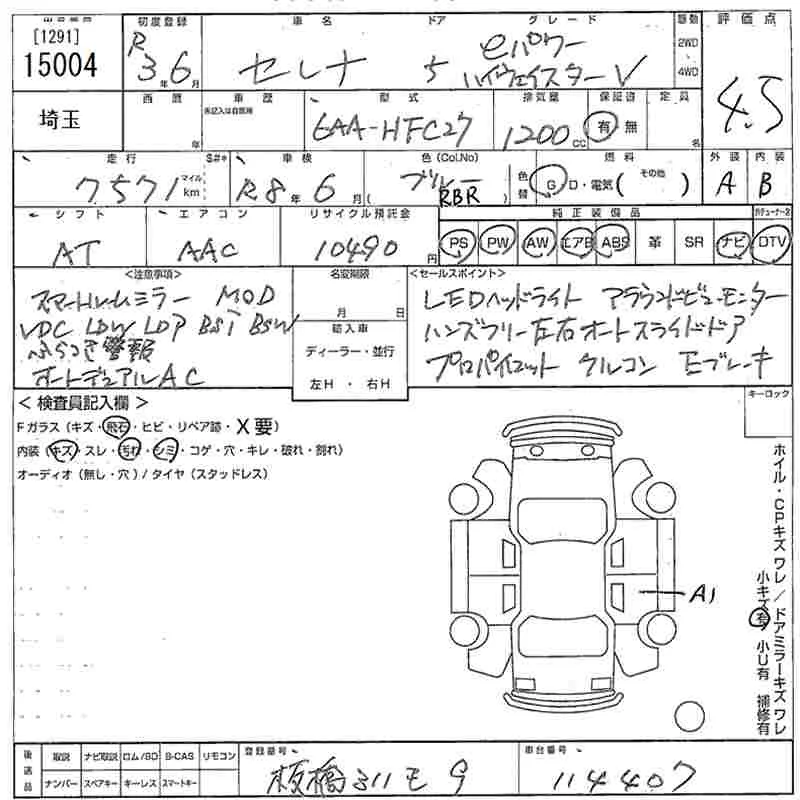 [1291]
15004
埼玉
初度登録
R 3年 6月
車名 ドア グレード
セレナ 5 eパワー
ハイウェイスターV
駆動
2WD
4WD
評価点
4.5
西暦
年
車歴
未記入は自家用
型式
6AA-HFC27
排気量
1200 CC
保証書
有 無
定員
名
走行 S#*
7571 マイル km
車検
R8年 6月
色 (Col.No)
ブルー
( RBR )
色替
燃料
G・D・電気( その他 )
外装 内装
A B
シフト
AT
エアコン
AAC
リサイクル預託金
10490 円
純正装備品
PS PW AW エアB ABS 革 SR ナビ DTV
<注意事項>
スマートルームミラー MOD
VDC LDW LDP BSI BSW
ふらつき警報
オートデュアルAC
名変期限
月 日
輸入車
ディーラー・並行
左H ・ 右H
<セールスポイント>
LEDヘッドライト アラウンドビューモニター
ハンズフリー左右オートスライドドア
プロパイロット クルコン Eブレーキ
< 検査員記入欄 >
Fガラス (キズ・飛石・ヒビ・リペア跡・X要)
内装 (キズ・スレ・汚れ・シミ・コゲ・穴・キレ・破れ・割れ)
オーディオ (無し・穴) / タイヤ (スタッドレス)
キーロック
A1
ホイル・CPキズ ワレ / ドアミラーキズ ワレ
小キズ有 小U有 補修有
後送品
取説 ナビ取説 ロム/BD B-CAS リモコン
ナンバー スペアキー キーレス スマートキー
登録番号
板橋 311 モ 9
車台番号
114407